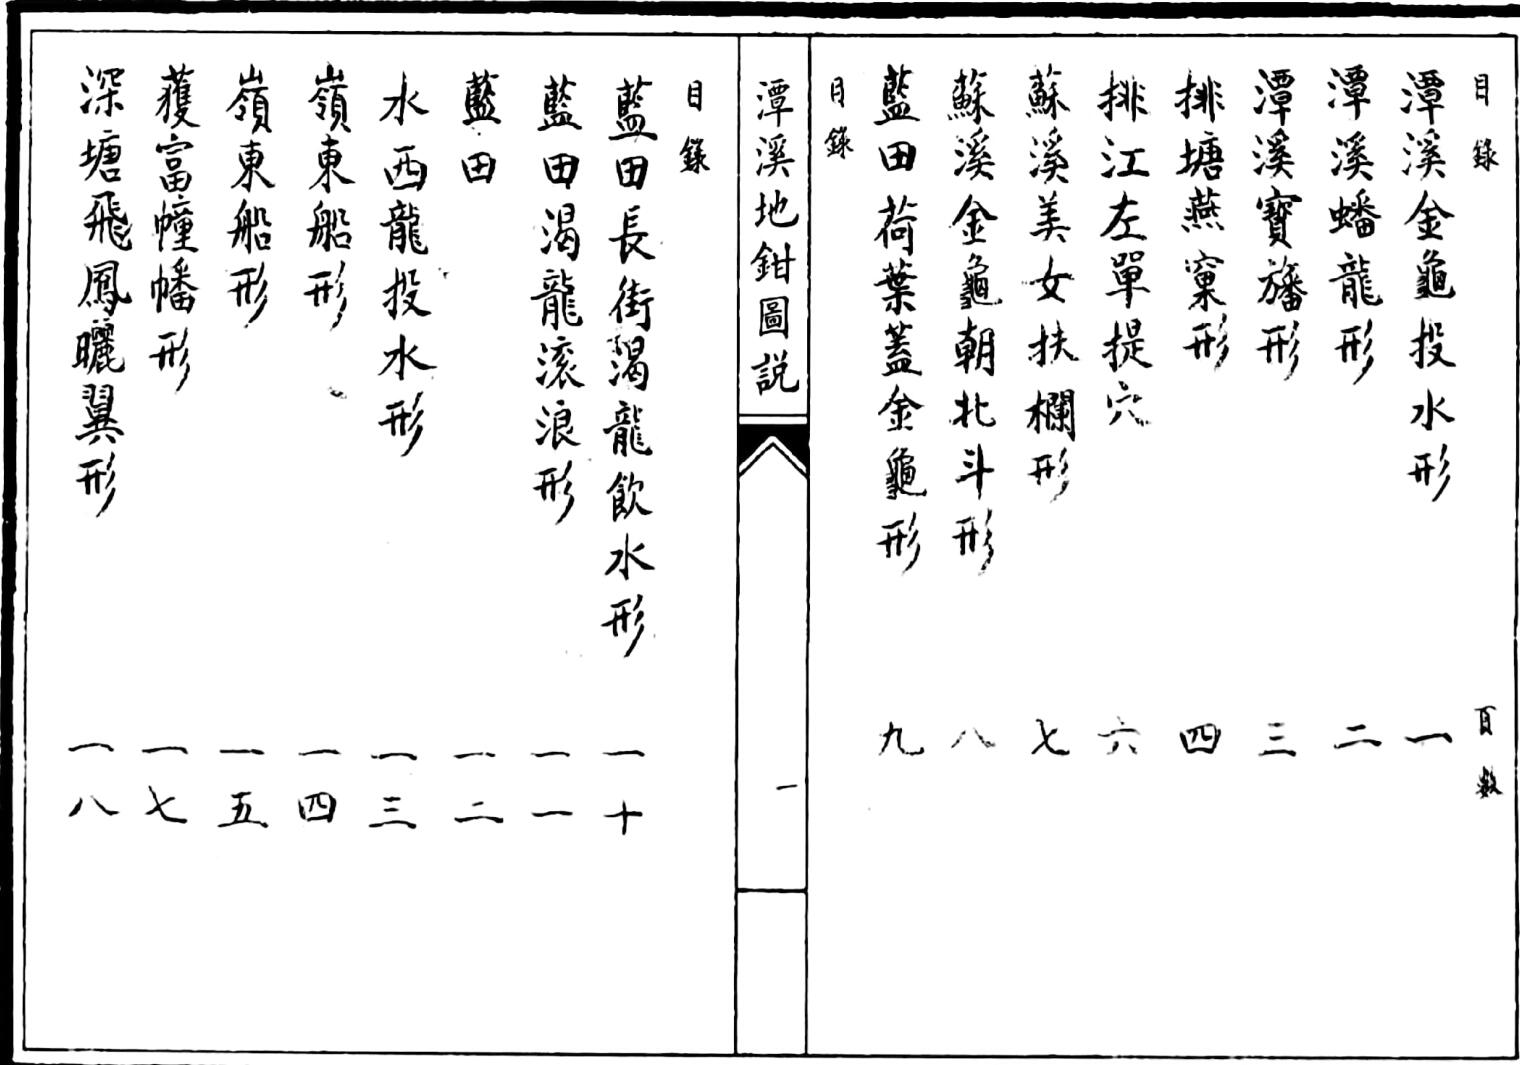 目錄 頁數
潭溪金龜投水形 一
潭溪蟠龍形 二
潭溪寶旛形 三
排塘燕窠形 四
排江左單提穴 六
蘇溪美女扶欄形 七
蘇溪金龜朝北斗形 八
藍田荷葉蓋金龜形 九
目錄
潭溪地鉗圖説
一
目錄
藍田長街渴龍飲水形 一十
藍田渴龍滚浪形 一一
藍田 一二
水西龍投水形 一三
嶺東船形 一四
嶺東船形 一五
獲富幢幡形 一七
深塘飛鳳曬翼形 一八